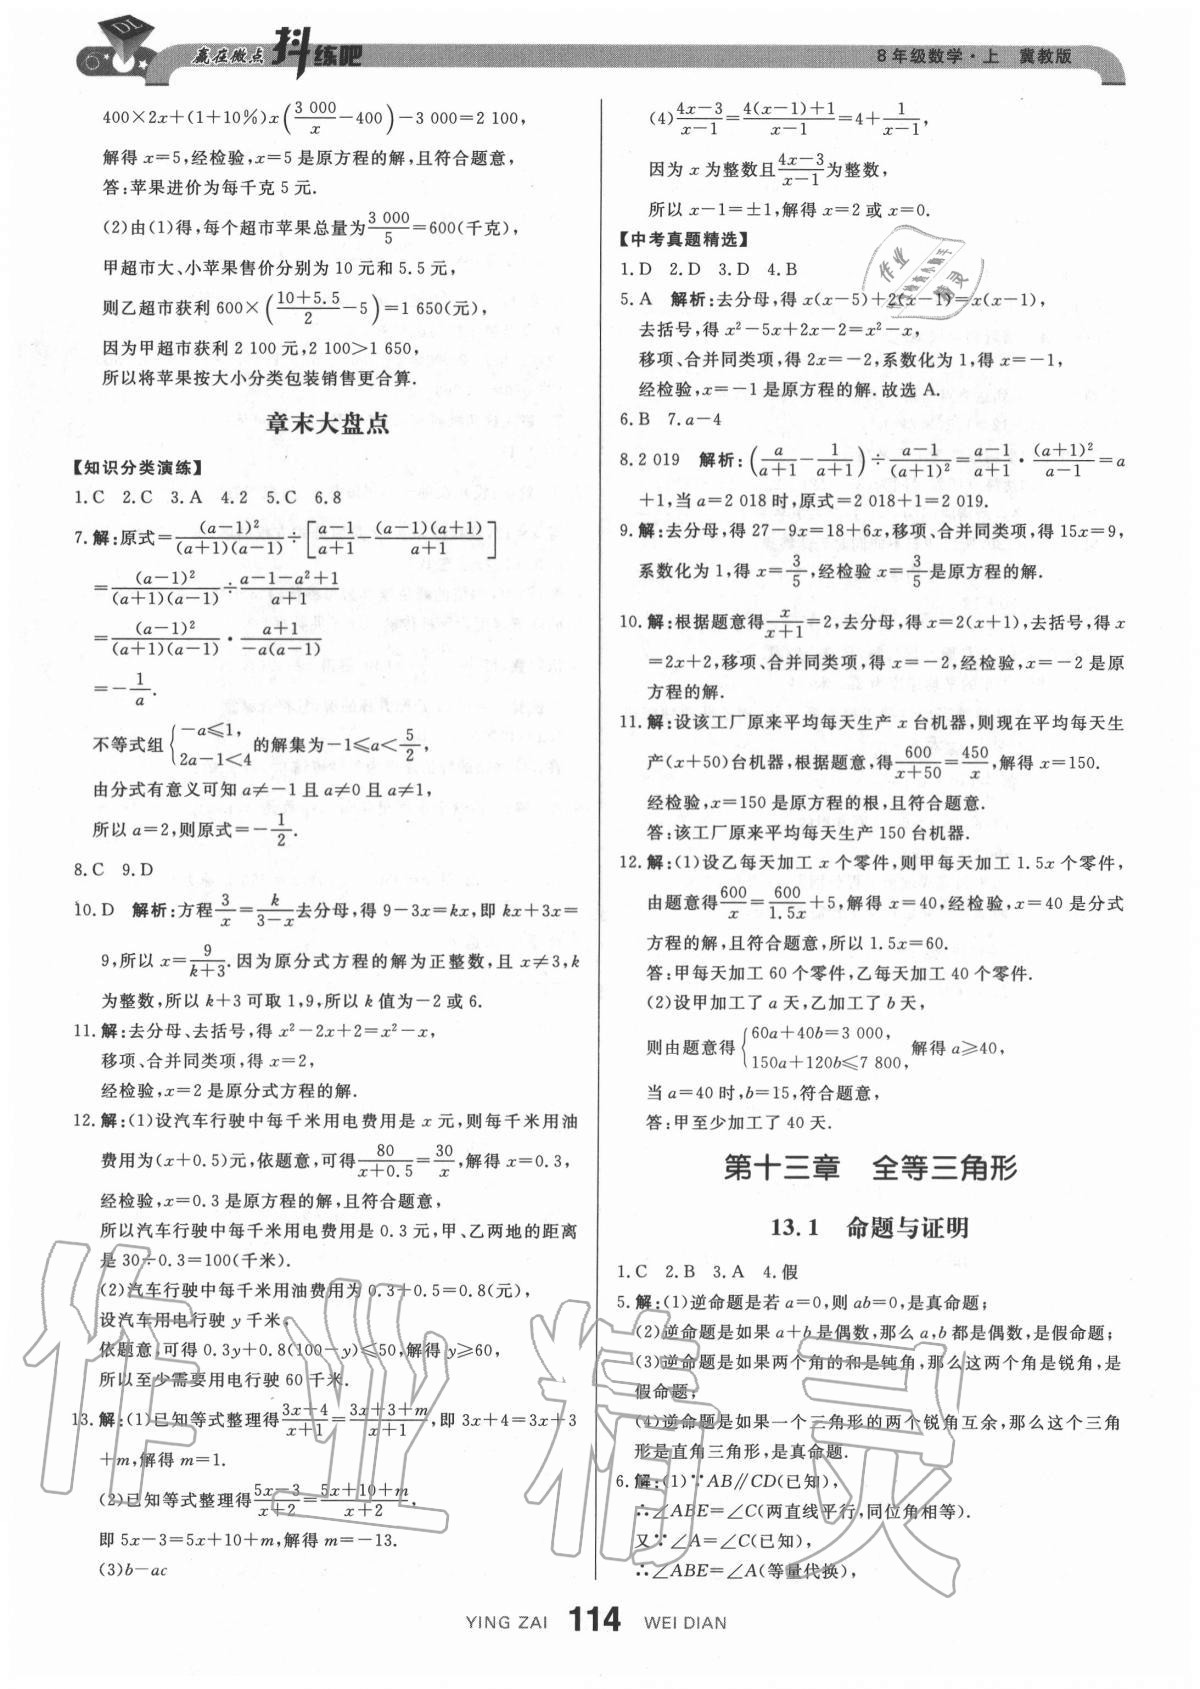 赢在微点 抖练吧
8年级数学·上 冀教版
400×2x+(1+10%)x(3 000/x-400)-3 000=2 100,
解得 x=5,经检验,x=5 是原方程的解,且符合题意,
答:苹果进价为每千克 5 元.
(2)由(1)得,每个超市苹果总量为3 000/5=600(千克),
甲超市大、小苹果售价分别为 10 元和 5.5 元,
则乙超市获利 600×((10+5.5)/2-5)=1 650(元),
因为甲超市获利 2 100 元,2 100>1 650,
所以将苹果按大小分类包装销售更合算.
章末大盘点
【知识分类演练】
1.C 2.C 3.A 4.2 5.C 6.8
7.解:原式=(a-1)²/((a+1)(a-1))÷[(a-1)/(a+1)-(a-1)(a+1)/(a+1)]
=(a-1)²/((a+1)(a-1))÷(a-1-a²+1)/(a+1)
=(a-1)²/((a+1)(a-1))·(a+1)/(-a(a-1))
=-1/a.
不等式组{-a≤1, 2a-1<4 的解集为-1≤a<5/2,
由分式有意义可知 a≠-1 且 a≠0 且 a≠1,
所以 a=2,则原式=-1/2.
8.C 9.D
10.D 解析:方程3/x=k/(3-x)去分母,得 9-3x=kx,即 kx+3x=
9,所以 x=9/(k+3).因为原分式方程的解为正整数,且 x≠3,k
为整数,所以 k+3 可取 1,9,所以 k 值为-2 或 6.
11.解:去分母、去括号,得 x²-2x+2=x²-x,
移项、合并同类项,得 x=2,
经检验,x=2 是原分式方程的解.
12.解:(1)设汽车行驶中每千米用电费用是 x 元,则每千米用油
费用为(x+0.5)元,依题意,可得80/(x+0.5)=30/x,解得 x=0.3,
经检验,x=0.3 是原方程的解,且符合题意,
所以汽车行驶中每千米用电费用是 0.3 元,甲、乙两地的距离
是 30÷0.3=100(千米).
(2)汽车行驶中每千米用油费用为 0.3+0.5=0.8(元),
设汽车用电行驶 y 千米,
依题意,可得 0.3y+0.8(100-y)≤50,解得 y≥60,
所以至少需要用电行驶 60 千米.
13.解:(1)已知等式整理得(3x+4)/(x+1)=(3x+3+m)/(x+1),即 3x+4=3x+3
+m,解得 m=1.
(2)已知等式整理得(5x-3)/(x+2)=(5x+10+m)/(x+2),
即 5x-3=5x+10+m,解得 m=-13.
(3)b-ac
(4)(4x-3)/(x-1)=(4(x-1)+1)/(x-1)=4+1/(x-1),
因为 x 为整数且(4x-3)/(x-1)为整数,
所以 x-1=±1,解得 x=2 或 x=0.
【中考真题精选】
1.D 2.D 3.D 4.B
5.A 解析:去分母,得 x(x-5)+2(x-1)=x(x-1),
去括号,得 x²-5x+2x-2=x²-x,
移项、合并同类项,得 2x=-2,系数化为 1,得 x=-1,
经检验,x=-1 是原方程的解.故选 A.
6.B 7.a-4
8.2 019 解析:(a/(a+1)-1/(a+1))÷(a-1)/(a+1)²=(a-1)/(a+1)·(a+1)²/(a-1)=a
+1,当 a=2 018 时,原式=2 018+1=2 019.
9.解:去分母,得 27-9x=18+6x,移项、合并同类项,得 15x=9,
系数化为 1,得 x=3/5,经检验 x=3/5是原方程的解.
10.解:根据题意得x/(x+1)=2,去分母,得 x=2(x+1),去括号,得 x
=2x+2,移项、合并同类项,得 x=-2,经检验,x=-2 是原
方程的解.
11.解:设该工厂原来平均每天生产 x 台机器,则现在平均每天生
产(x+50)台机器,根据题意,得600/(x+50)=450/x,解得 x=150.
经检验,x=150 是原方程的根,且符合题意.
答:该工厂原来平均每天生产 150 台机器.
12.解:(1)设乙每天加工 x 个零件,则甲每天加工 1.5x 个零件,
由题意得600/x=600/1.5x+5,解得 x=40,经检验,x=40 是分式
方程的解,且符合题意,所以 1.5x=60.
答:甲每天加工 60 个零件,乙每天加工 40 个零件.
(2)设甲加工了 a 天,乙加工了 b 天,
则由题意得{60a+40b=3 000, 150a+120b≤7 800, 解得 a≥40,
当 a=40 时,b=15,符合题意,
答:甲至少加工了 40 天.
第十三章 全等三角形
13.1 命题与证明
1.C 2.B 3.A 4.假
5.解:(1)逆命题是若 a=0,则 ab=0,是真命题;
(2)逆命题是如果 a+b 是偶数,那么 a,b 都是偶数,是假命题;
(3)逆命题是如果两个角的和是钝角,那么这两个角是锐角,是
假命题;
(4)逆命题是如果一个三角形的两个锐角互余,那么这个三角
形是直角三角形,是真命题.
6.解:(1)∵AB∥CD(已知),
∴∠ABE=∠C(两直线平行,同位角相等).
又∵∠A=∠C(已知),
∴∠ABE=∠A(等量代换),
YING ZAI 114 WEI DIAN
作业精灵